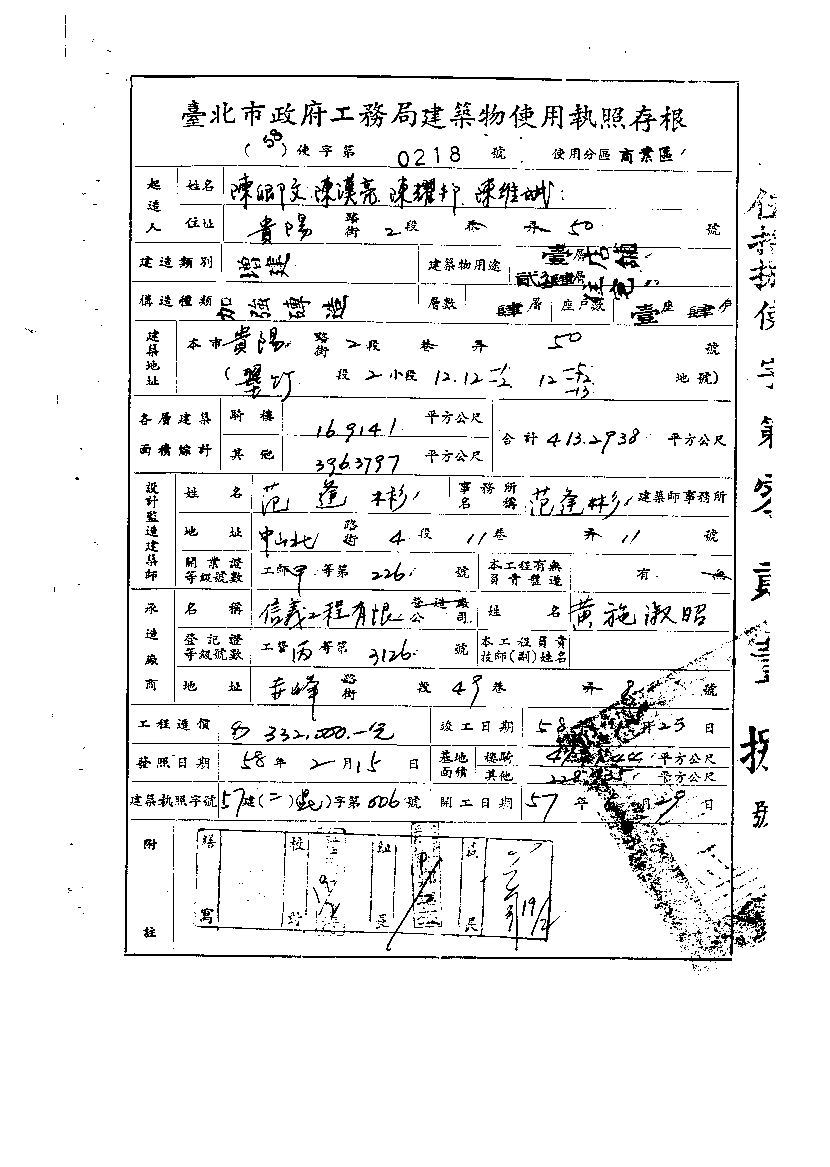 臺北市政府工務局建築物使用執照存根
(58)使字第 0218 號 使用分區 商業區
起造人 姓名 陳卿文 陳漢亮 陳耀邦 陳維斌
住址 貴陽 路街 2段 巷 弄 50 號
建造類別 增建 建築物用途 壹層店舖 貳參肆層住宅
構造種類 加強磚造 層數 肆層 座戶數 壹座 肆戶
建築地址 本市 貴陽 路街 2段 巷 弄 50 號
( 段 2 小段 12.12 地號)
各層建築面積總計 騎樓 16.9141 平方公尺 合計 413.2938 平方公尺
其他 396.3797 平方公尺
設計監造建築師 姓名 范蓬彬 事務所名稱 范蓬彬 建築師事務所
地址 中山北 路街 4段 11巷 弄 11 號
開業證等級號數 工師甲等第 226 號 本工程有無負責監造 有 無
承造廠商 名稱 信義工程有限 營造廠公司 姓名 黃施淑昭
登記證等級號數 工營丙等第 3126 號 本工程負責技師(副)姓名
地址 赤峰 路街 段 49巷 弄 8 號
工程造價 332,000.-元 竣工日期 58 月 25 日
發照日期 58年 2月15日 基地面積 騎樓 平方公尺
其他 平方公尺
建築執照字號 57建(二)字第 006 號 開工日期 57 年 月 29 日
附註 繕寫 校對 組長 段長 19/2
使字第零貳壹捌號